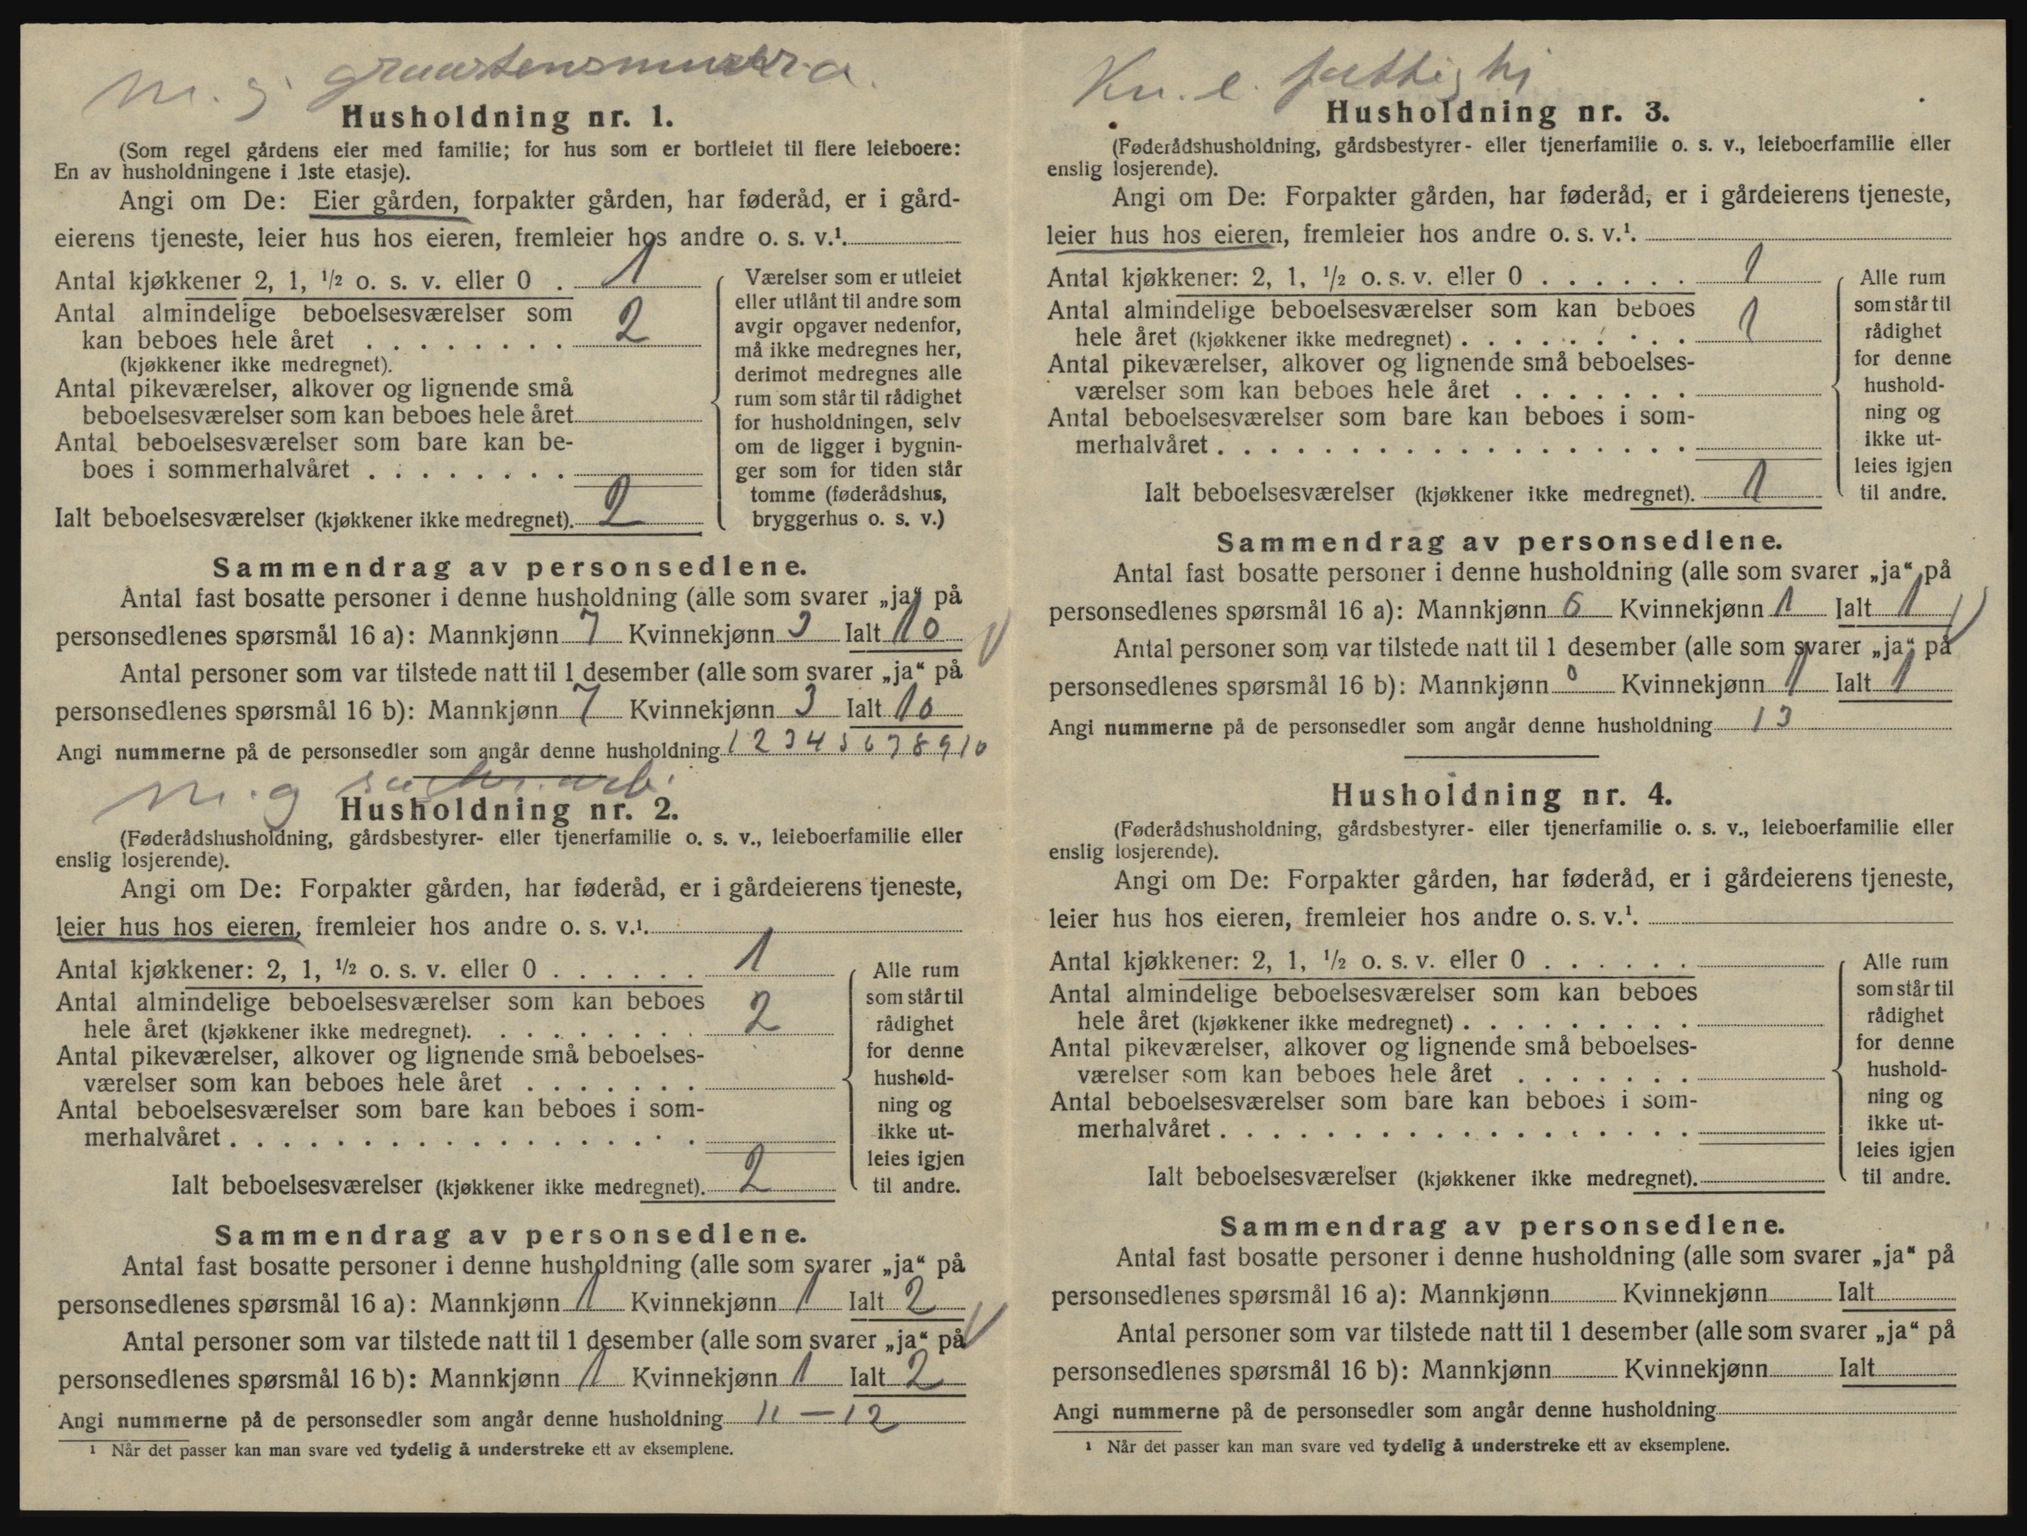 m. g graastensmurer.a.
Husholdning nr. 1.
(Som regel gårdens eier med familie; for hus som er bortleiet til flere leieboere:
En av husholdningene i 1ste etasje).
Angi om De: Eier gården, forpakter gården, har føderåd, er i gård-
eierens tjeneste, leier hus hos eieren, fremleier hos andre o. s. v.¹.
Antal kjøkkener 2, 1, ½ o. s. v. eller 0 . 1
Antal almindelige beboelsesværelser som
kan beboes hele året . . . . . . . . 2
(kjøkkener ikke medregnet).
Antal pikeværelser, alkover og lignende små
beboelsesværelser som kan beboes hele året
Antal beboelsesværelser som bare kan be-
boes i sommerhalvåret . . . . . . . .
Ialt beboelsesværelser (kjøkkener ikke medregnet). 2
Værelser som er utleiet
eller utlånt til andre som
avgir opgaver nedenfor,
må ikke medregnes her,
derimot medregnes alle
rum som står til rådighet
for husholdningen, selv
om de ligger i bygnin-
ger som for tiden står
tomme (føderådshus,
bryggerhus o. s. v.)
Sammendrag av personsedlene.
Antal fast bosatte personer i denne husholdning (alle som svarer „ja“ på
personsedlenes spørsmål 16 a): Mannkjønn 7 Kvinnekjønn 3 Ialt 10
Antal personer som var tilstede natt til 1 desember (alle som svarer „ja“ på
personsedlenes spørsmål 16 b): Mannkjønn 7 Kvinnekjønn 3 Ialt 10
Angi nummerne på de personsedler som angår denne husholdning 1 2 3 4 5 6 7 8 9 10
m. g arb.
Husholdning nr. 2.
(Føderådshusholdning, gårdsbestyrer- eller tjenerfamilie o. s. v., leieboerfamilie eller
enslig losjerende).
Angi om De: Forpakter gården, har føderåd, er i gårdeierens tjeneste,
leier hus hos eieren, fremleier hos andre o. s. v.¹.
Antal kjøkkener: 2, 1, ½ o. s. v. eller 0 . . . . . . 1
Antal almindelige beboelsesværelser som kan beboes
hele året (kjøkkener ikke medregnet). . . . . . . . . 2
Antal pikeværelser, alkover og lignende små beboelses-
værelser som kan beboes hele året . . . . . . .
Antal beboelsesværelser som bare kan beboes i som-
merhalvåret . . . . . . . . . . . . . . . . . .
Ialt beboelsesværelser (kjøkkener ikke medregnet). 2
Alle rum
som står til
rådighet
for denne
hushold-
ning og
ikke ut-
leies igjen
til andre.
Sammendrag av personsedlene.
Antal fast bosatte personer i denne husholdning (alle som svarer „ja“ på
personsedlenes spørsmål 16 a): Mannkjønn 1 Kvinnekjønn 1 Ialt 2
Antal personer som var tilstede natt til 1 desember (alle som svarer „ja“ på
personsedlenes spørsmål 16 b): Mannkjønn 1 Kvinnekjønn 1 Ialt 2
Angi nummerne på de personsedler som angår denne husholdning 11 – 12
¹ Når det passer kan man svare ved tydelig å understreke ett av eksemplene.
Kv. e. fattig
Husholdning nr. 3.
(Føderådshusholdning, gårdsbestyrer- eller tjenerfamilie o. s. v., leieboerfamilie eller
enslig losjerende).
Angi om De: Forpakter gården, har føderåd, er i gårdeierens tjeneste,
leier hus hos eieren, fremleier hos andre o. s. v.¹.
Antal kjøkkener: 2, 1, ½ o. s. v. eller 0 . . . . . . 1
Antal almindelige beboelsesværelser som kan beboes
hele året (kjøkkener ikke medregnet) . . . . . . . . . 1
Antal pikeværelser, alkover og lignende små beboelses-
værelser som kan beboes hele året . . . . . . .
Antal beboelsesværelser som bare kan beboes i som-
merhalvåret . . . . . . . . . . . . . . . . . .
Ialt beboelsesværelser (kjøkkener ikke medregnet). 1
Alle rum
som står til
rådighet
for denne
hushold-
ning og
ikke ut-
leies igjen
til andre.
Sammendrag av personsedlene.
Antal fast bosatte personer i denne husholdning (alle som svarer „ja“ på
personsedlenes spørsmål 16 a): Mannkjønn 0 Kvinnekjønn 1 Ialt 1
Antal personer som var tilstede natt til 1 desember (alle som svarer „ja“ på
personsedlenes spørsmål 16 b): Mannkjønn 0 Kvinnekjønn 1 Ialt 1
Angi nummerne på de personsedler som angår denne husholdning 13
Husholdning nr. 4.
(Føderådshusholdning, gårdsbestyrer- eller tjenerfamilie o. s. v., leieboerfamilie eller
enslig losjerende).
Angi om De: Forpakter gården, har føderåd, er i gårdeierens tjeneste,
leier hus hos eieren, fremleier hos andre o. s. v.¹.
Antal kjøkkener: 2, 1, ½ o. s. v. eller 0 . . . . . .
Antal almindelige beboelsesværelser som kan beboes
hele året (kjøkkener ikke medregnet) . . . . . . . . .
Antal pikeværelser, alkover og lignende små beboelses-
værelser som kan beboes hele året . . . . . . .
Antal beboelsesværelser som bare kan beboes i som-
merhalvåret . . . . . . . . . . . . . . . . . .
Ialt beboelsesværelser (kjøkkener ikke medregnet).
Alle rum
som står til
rådighet
for denne
hushold-
ning og
ikke ut-
leies igjen
til andre.
Sammendrag av personsedlene.
Antal fast bosatte personer i denne husholdning (alle som svarer „ja“ på
personsedlenes spørsmål 16 a): Mannkjønn Kvinnekjønn Ialt
Antal personer som var tilstede natt til 1 desember (alle som svarer „ja“ på
personsedlenes spørsmål 16 b): Mannkjønn Kvinnekjønn Ialt
Angi nummerne på de personsedler som angår denne husholdning
¹ Når det passer kan man svare ved tydelig å understreke ett av eksemplene.